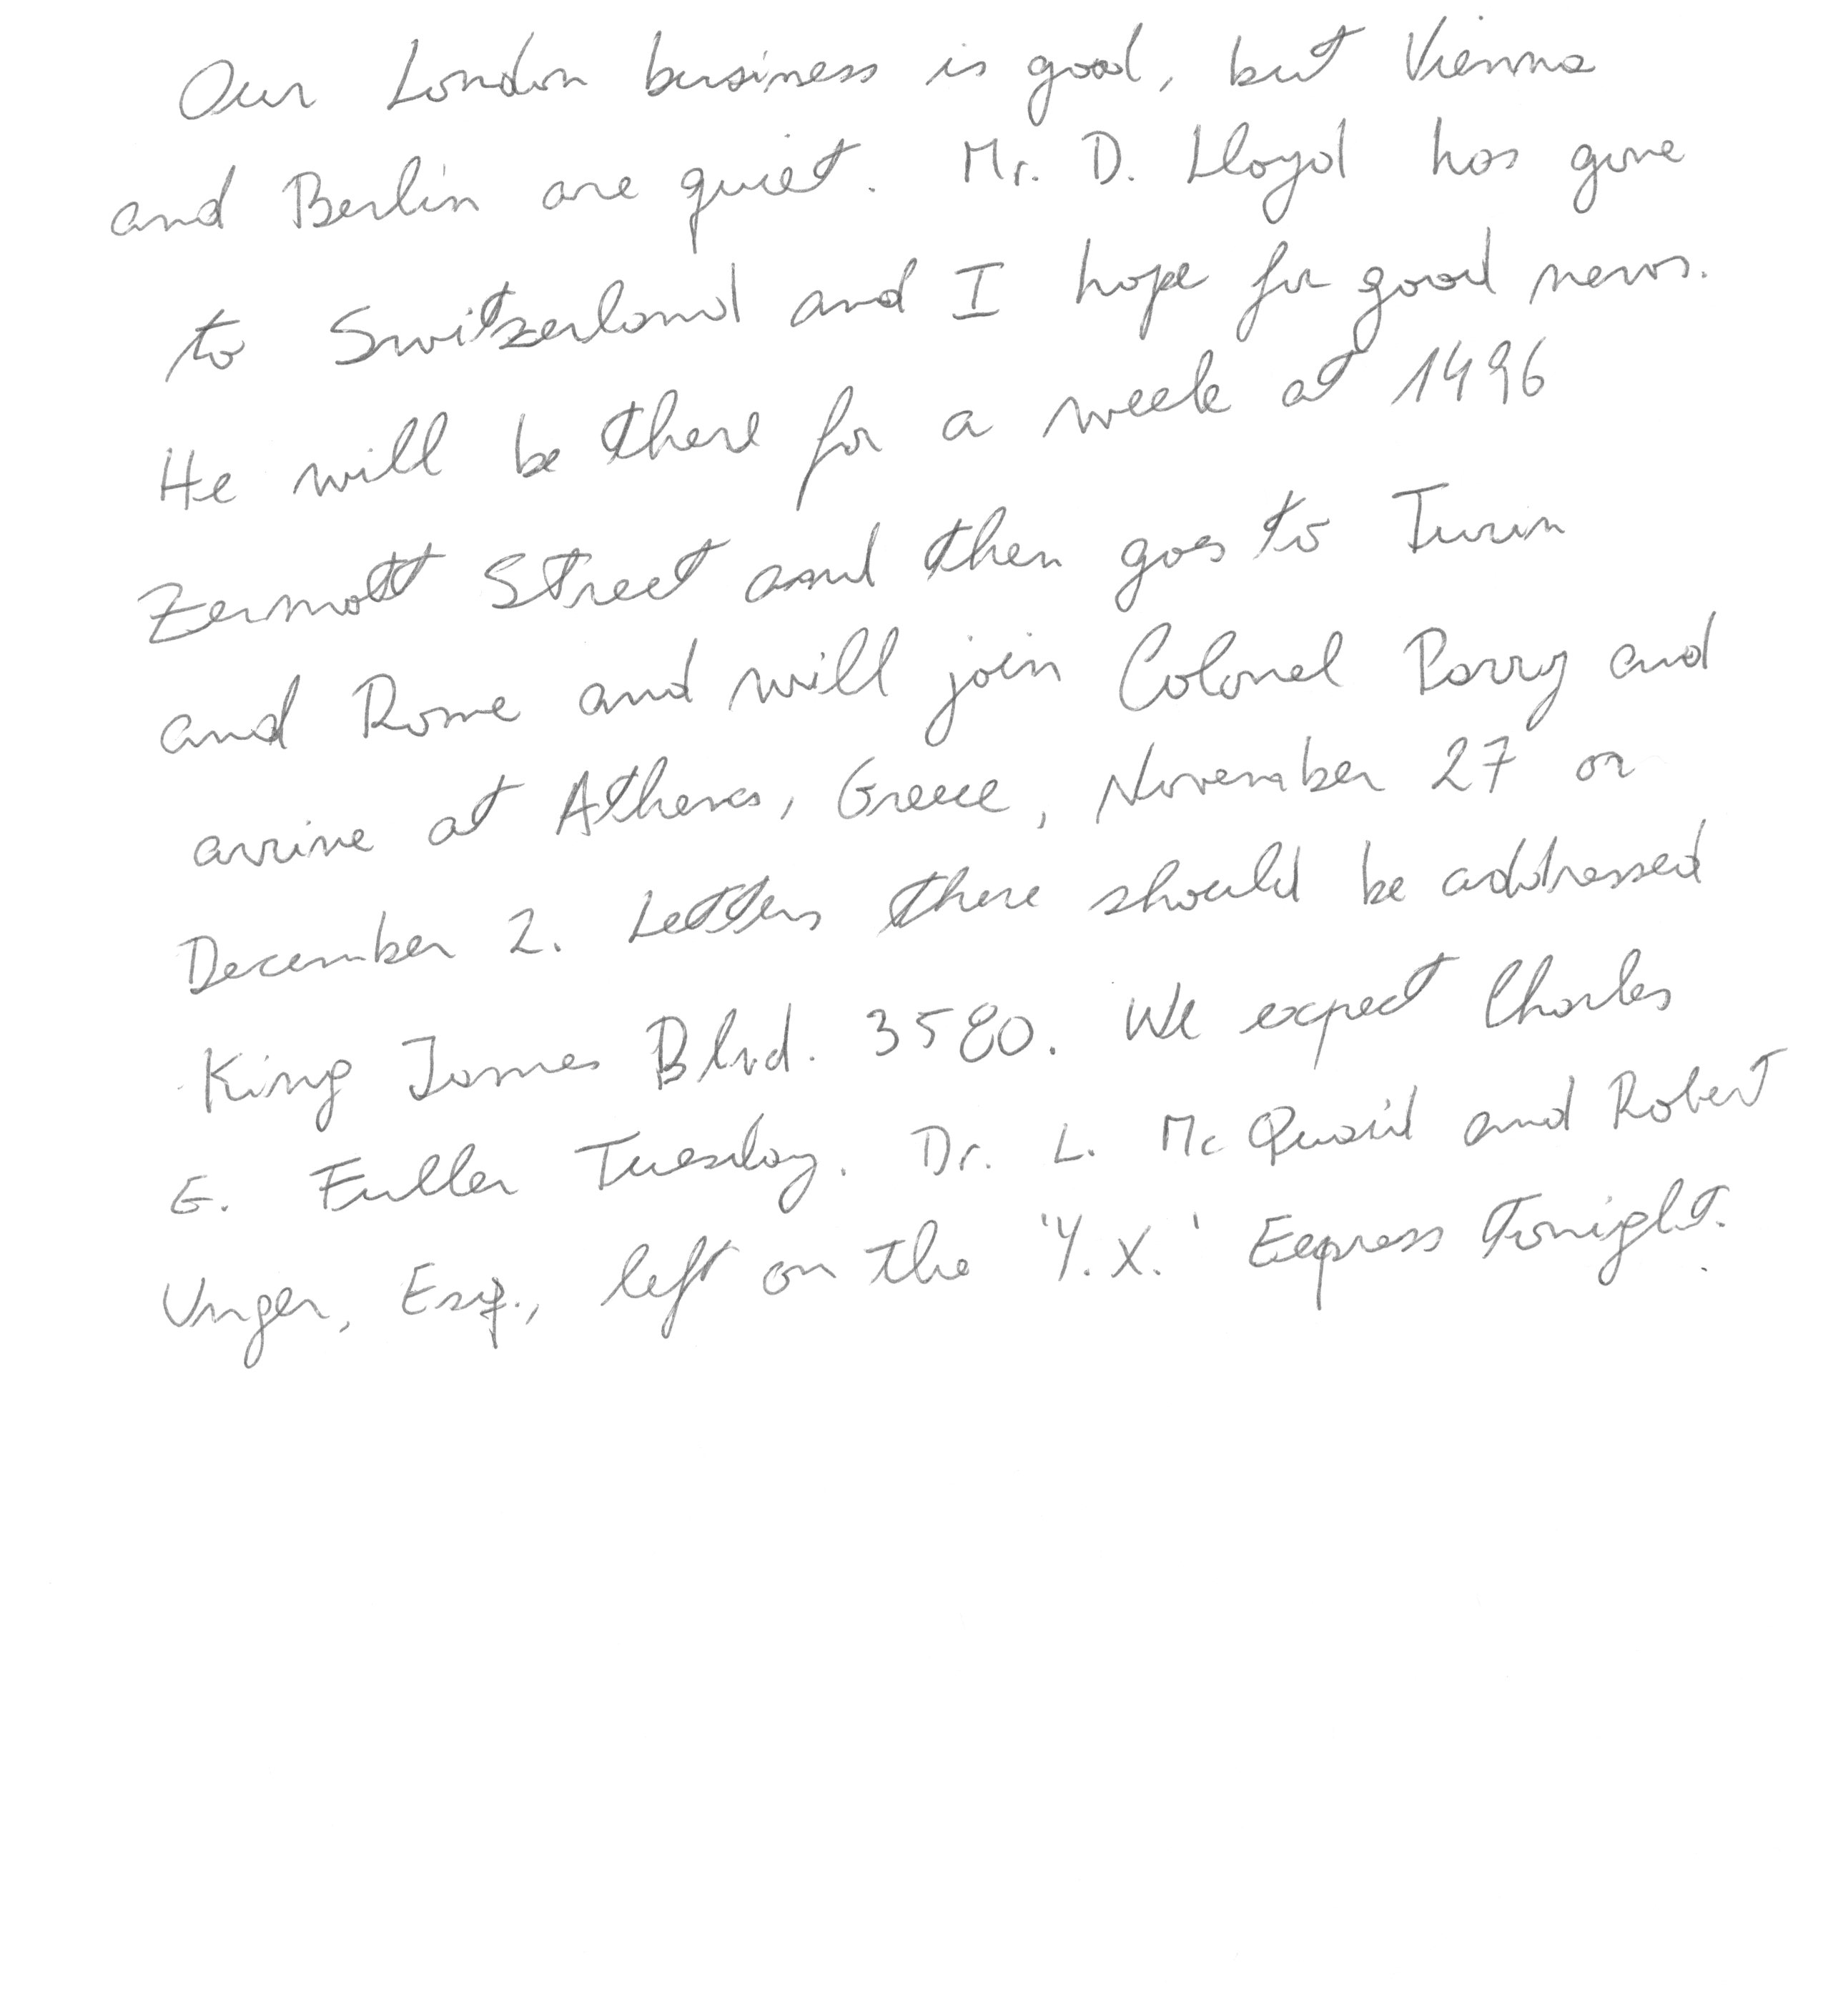 Our London business is good, but Vienna
and Berlin are quiet. Mr. D. Lloyd has gone
to Switzerland and I hope for good news.
He will be there for a week at 1496
Zermott Street and then goes to Turin
and Rome and will join Colonel Parry and
arrive at Athens, Greece, November 27 or
December 2. Letters there should be addressed
King James Blvd. 3580. We expect Charles
E. Fuller Tuesday. Dr. L. McQuaid and Robert
Unger, Esq., left on the 'Y.X.' Express Tonight.